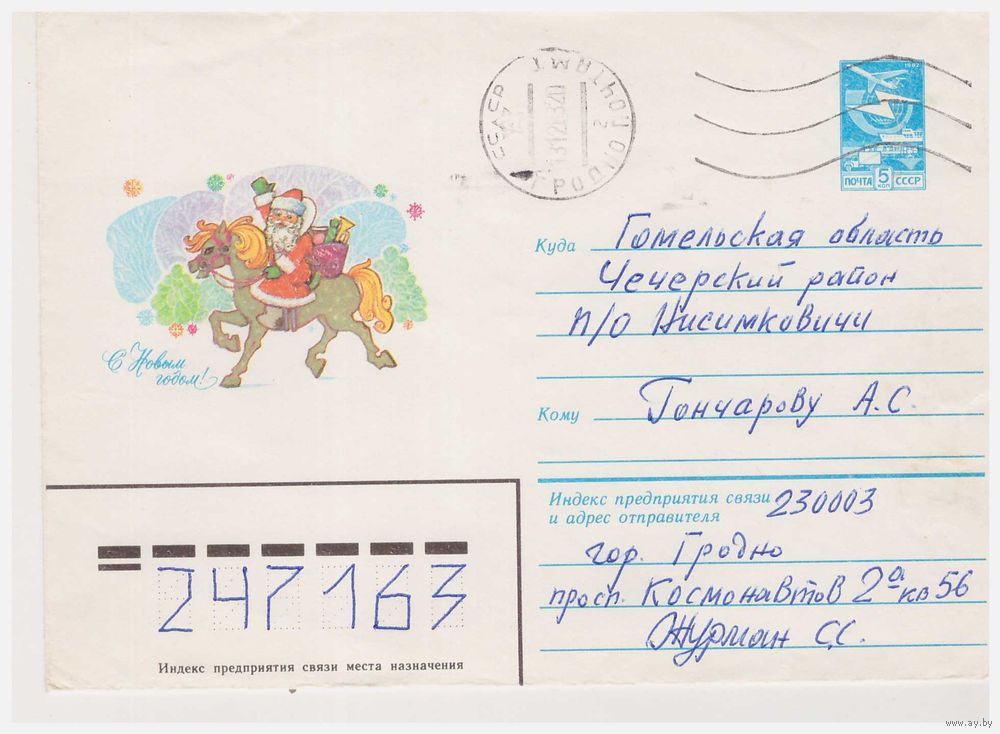 1982
ПОЧТА 5 КОП СССР
С Новым
годом!
Куда Гомельская область
Чечерский район
п/о Нисимковичи
Кому Гончарову А.С.
Индекс предприятия связи 230003
и адрес отправителя
гор. Гродно
просп. Космонавтов 2а кв 56
Журман С.С.
247163
Индекс предприятия связи места назначения
www.ay.by